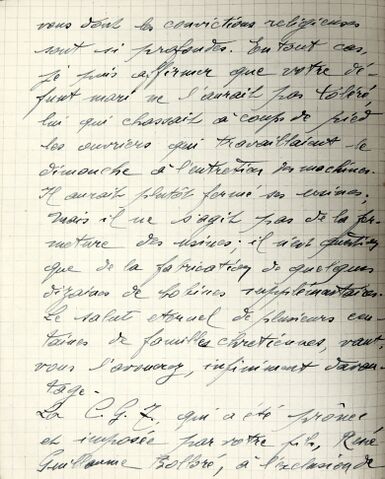 vous dont les convictions religieuses
sont si profondes. En tout cas,
je puis affirmer que votre dé-
funt mari ne l'aurait pas toléré,
lui qui chassait à coups de pied
les ouvriers qui travaillaient le
dimanche à l'entretien des machines.
Il aurait plutôt fermé ses usines;
mais il ne s'agit pas de la fer-
meture des usines; il n'est question
que de la fabrication de quelques
dizaines de bobines supplémentaires.
Le salut éternel de plusieurs cen-
taines de familles chrétiennes, vaut,
vous l'avouerez, infiniment davan-
tage.
La C.G.T., qui a été prônée
et imposée par votre fils, René
Guillaume Bolloré, à l'exclusion de